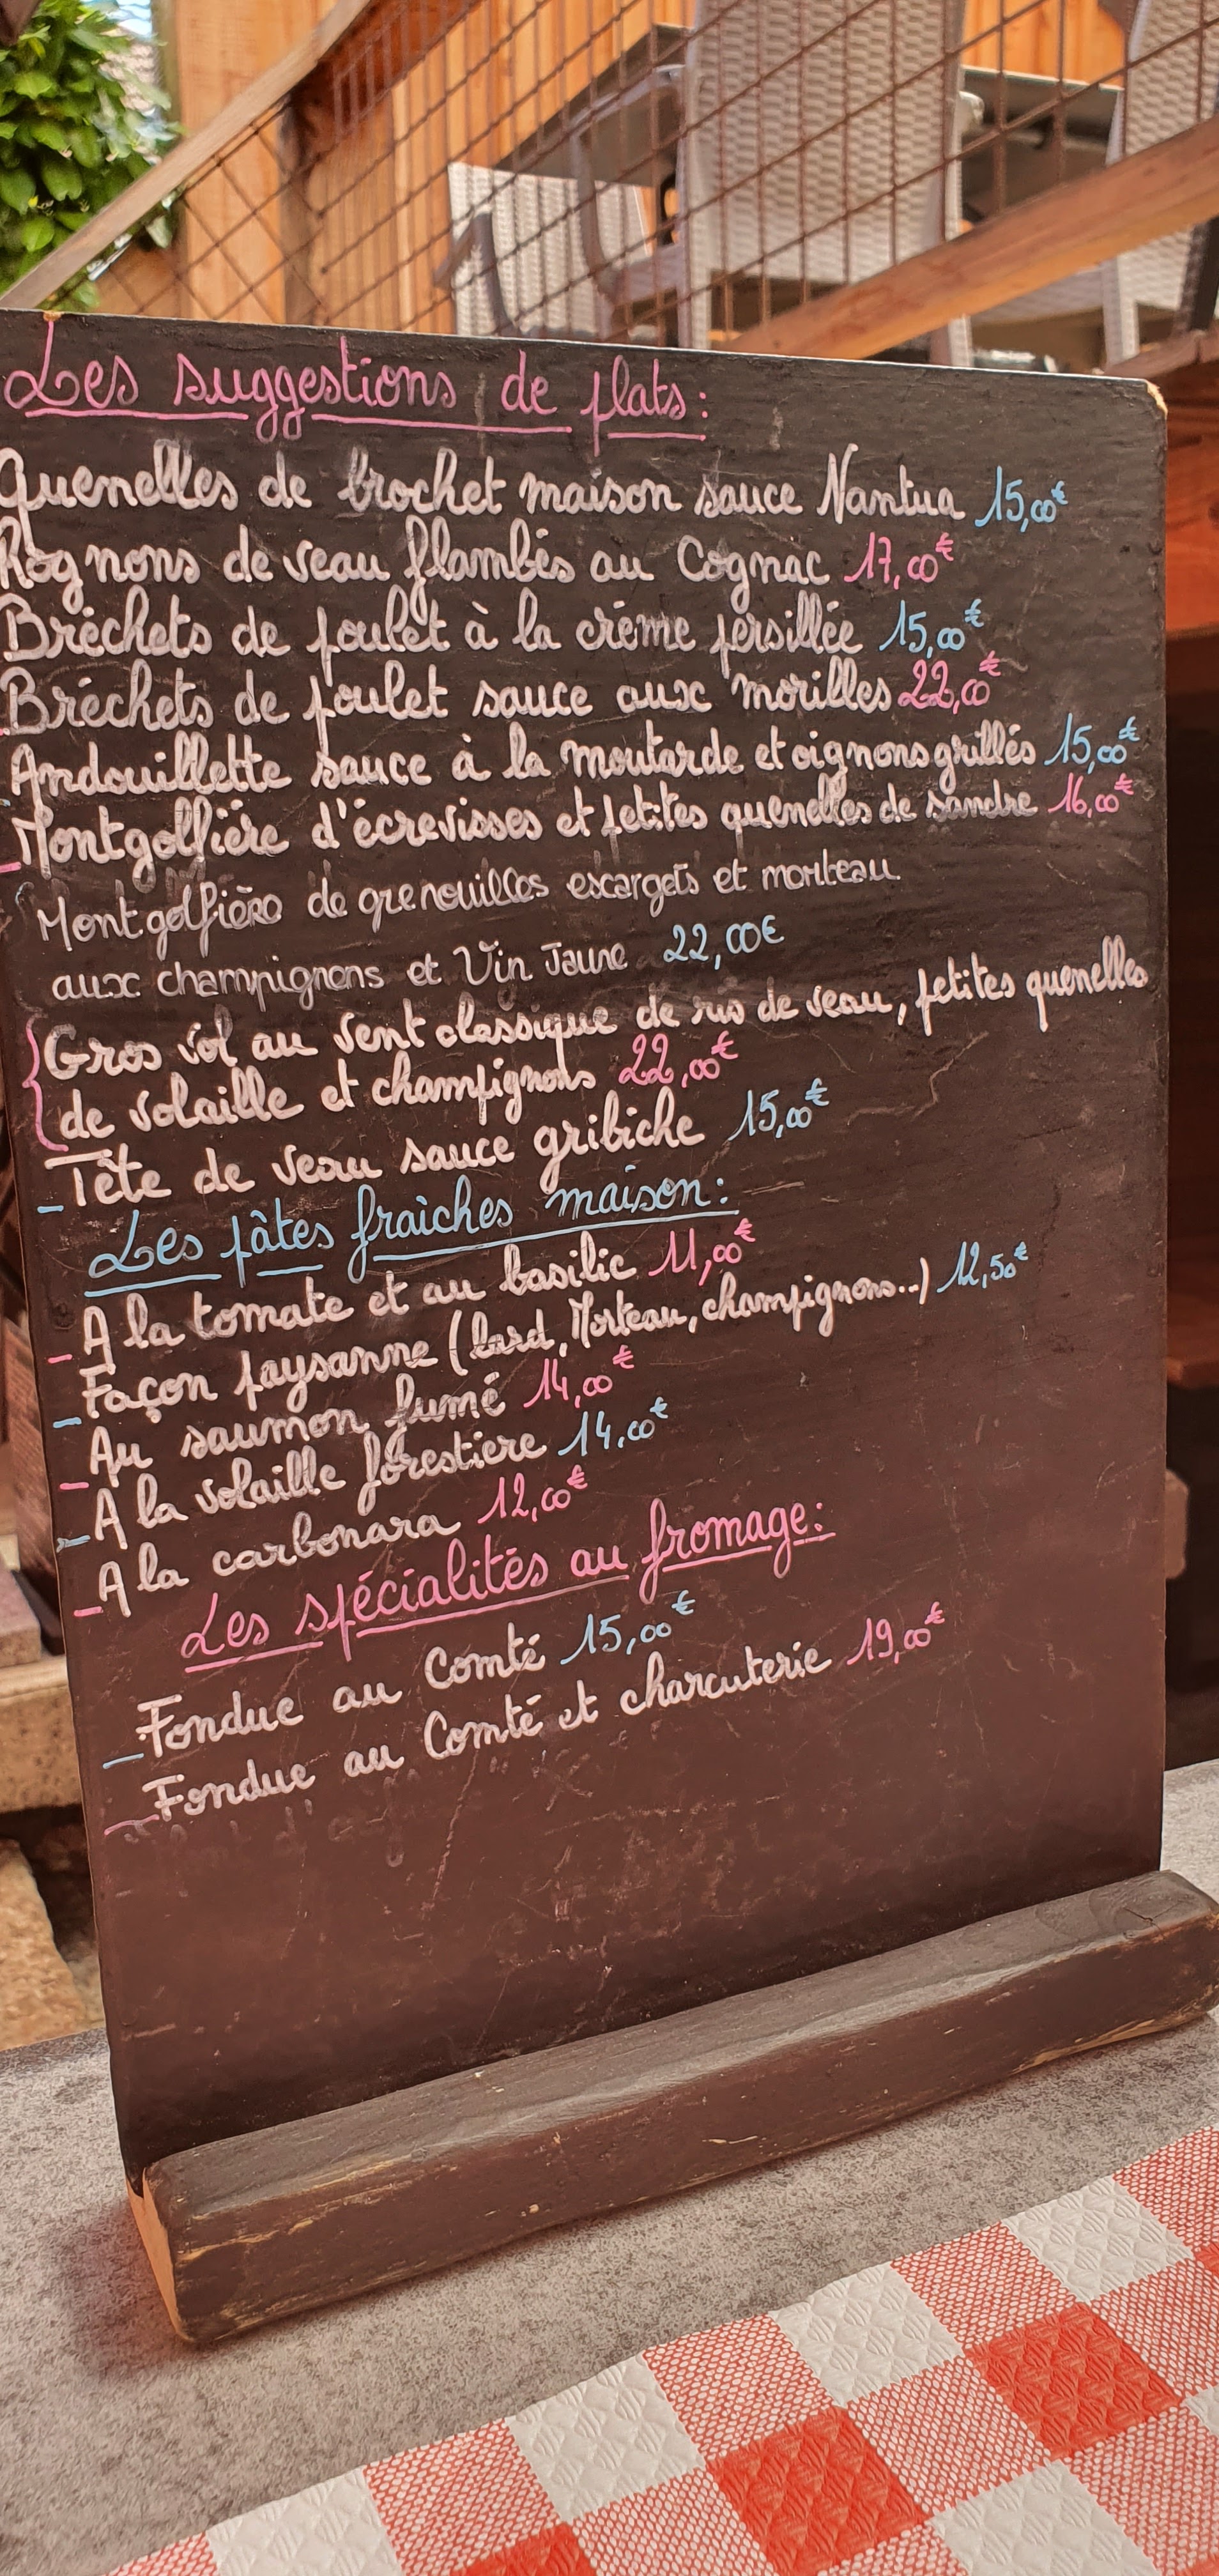 Les suggestions de plats:
Quenelles de brochet maison sauce Nantua 15,00€
Rognons de veau flambés au Cognac 17,00€
Bréchets de poulet à la crème persillée 15,00€
Bréchets de poulet sauce aux morilles 22,00€
Andouillette sauce à la moutarde et oignons grillés 15,00€
Montgolfière d'écrevisses et petites quenelles de sandre 16,00€
Montgolfière de grenouilles escargots et morteau
aux champignons et Vin Jaune 22,00€
Gros vol au vent classique de ris de veau, petites quenelles
de volaille et champignons 22,00€
Tête de veau sauce gribiche 15,00€
Les pâtes fraîches maison:
A la tomate et au basilic 11,00€
Façon paysanne (lard, Morteau, champignons...) 12,50€
Au saumon fumé 14,00€
A la volaille forestière 14,00€
A la carbonara 12,00€
Les spécialités au fromage:
Fondue au Comté 15,00€
Fondue au Comté et charcuterie 19,00€